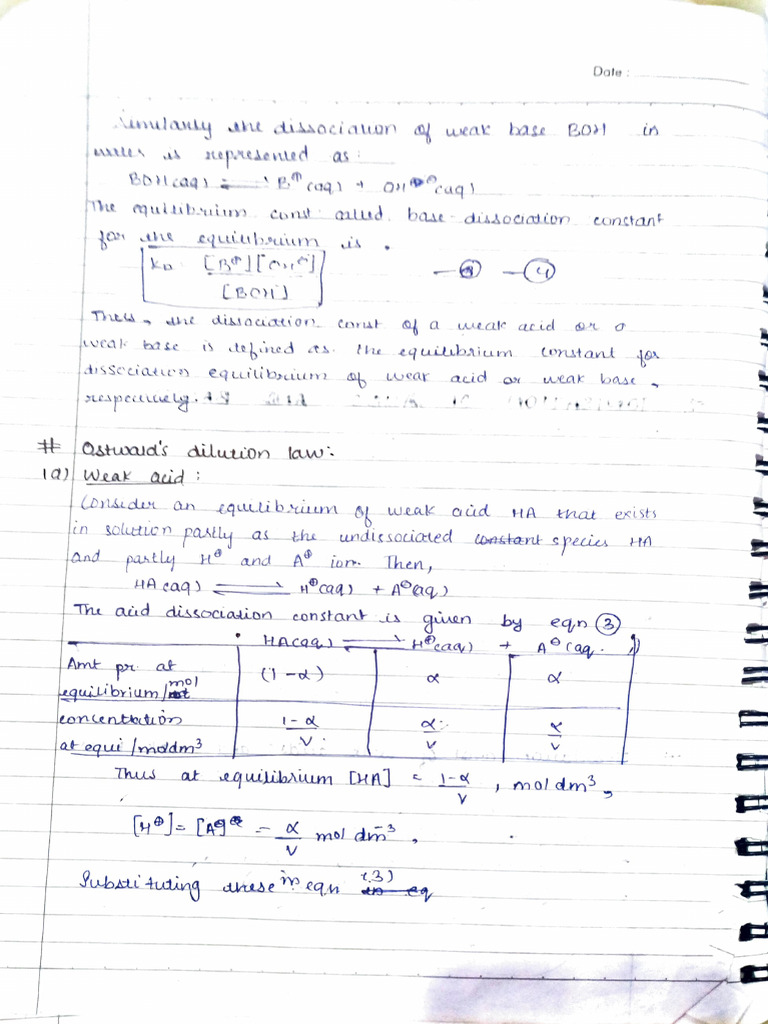 Date :
Similarly the dissociation of weak base BOH in
water is represented as :
BOH(aq) ⇌ B⊕(aq) + OH⊖(aq)
The equilibrium const called base dissociation constant
for the equilibrium is .
Kb = [B⊕][OH⊖] / [BOH] — ③ — ④
Thus, the dissociation const of a weak acid or a
weak base is defined as the equilibrium constant for
dissociation equilibrium of weak acid or weak base,
respectively.
# Ostwald's dilution law:
1a) Weak acid :
Consider an equilibrium of weak acid HA that exists
in solution partly as the undissociated constant species HA
and partly H⊕ and A⊕ ion. Then,
HA(aq) ⇌ H⊕(aq) + A⊖(aq)
The acid dissociation constant is given by eqn ③
HA(aq) ⇌ H⊕(aq) + A⊖(aq)
Amt pr. at equilibrium/mol (1-α) α α
concentration at equi /moldm³ 1-α/V α/V α/V
Thus at equilibrium [HA] = 1-α/V , mol dm³,
[H⊕] = [A⊖] = α/V mol dm⁻³,
Substituting these in eqn (3) in eq